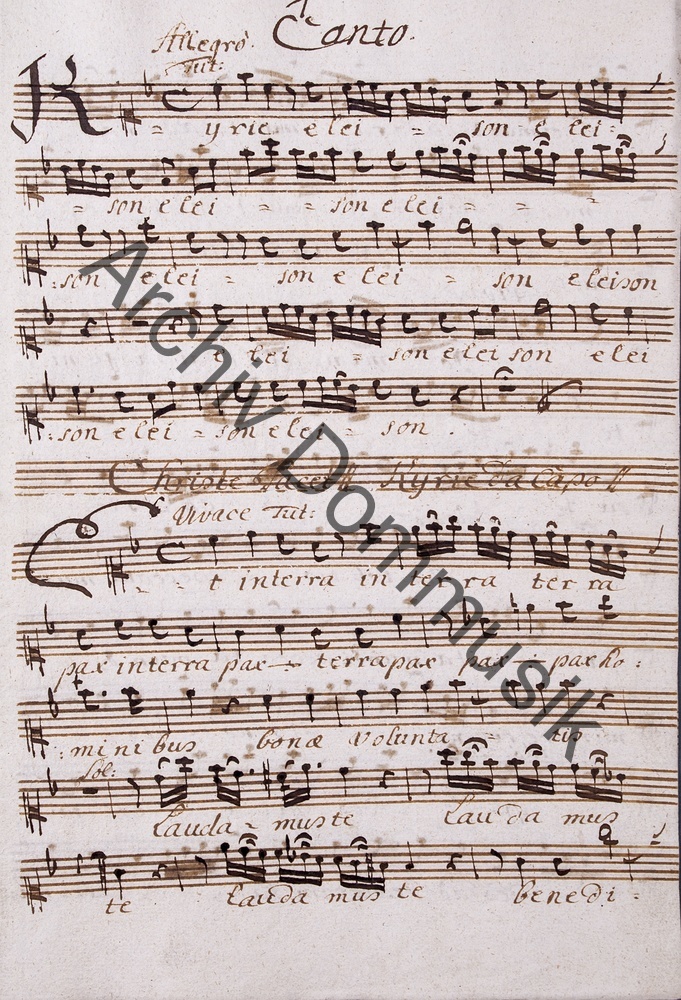 Canto.
Allegro.
Tut:
Kyrie elei - son e lei:
- son elei - - son elei - - -
:son e lei - son e lei - son eleison
e lei - son elei son elei
:son elei - son elei - son.
Christe tacet Kyrie da Capo
Vivace Tut:
Et interra in ter ra ter ra
pax interra pax - terra pax pax - pax ho:
:mini bus bonæ volunta - tis
Sol:
Lauda - mus te Lau da mus
te lauda mus te benedi:
Archiv Dommusik